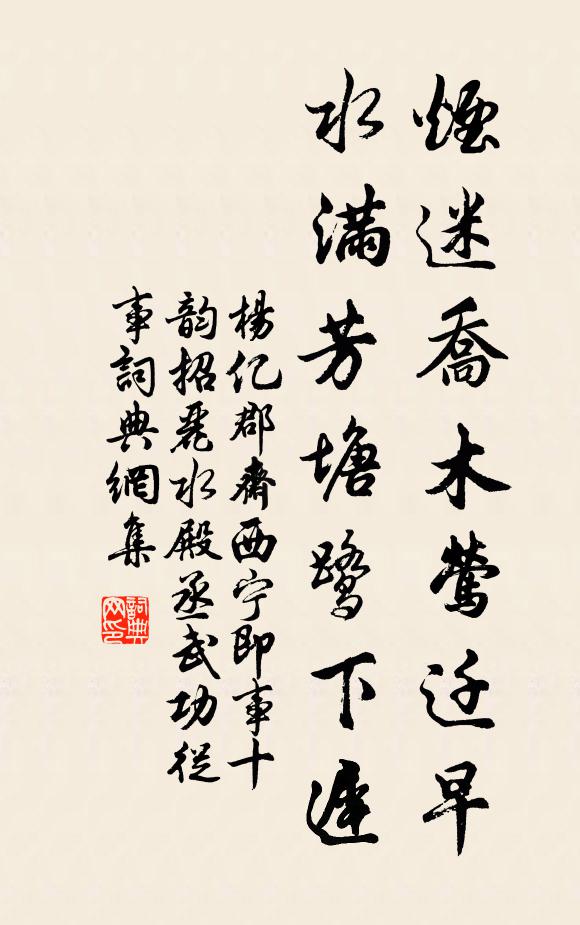 煙迷喬木鶯迁早
水滿芳塘鷺下遲
楊亿郡齋西宁即事十
韵招麗水殿丞武功從
事詞典網集
詞典网印